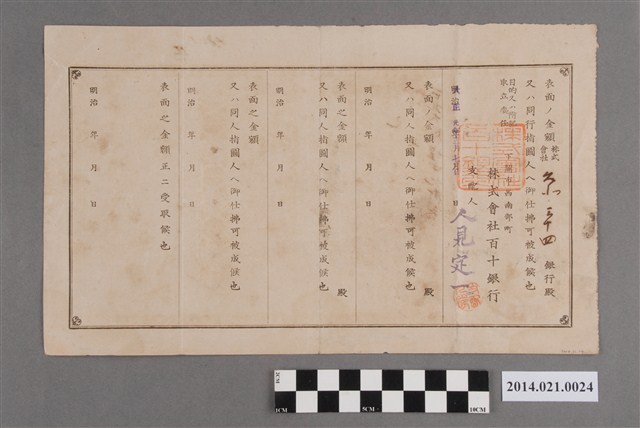 表面ノ金額 株式會社 三十四 銀行殿
又ハ同行指圖人ヘ御仕拂可被成候也
下關市西南部町
株式會社百十銀行
支配人 人見定一
日
表面ノ金額 殿
又ハ同人指圖人ヘ御仕拂可被成候也
明治 年 月 日
表面之金額 殿
又ハ同人指圖人ヘ御仕拂可被成候也
明治 年 月 日
表面之金額
又ハ同人指圖人ヘ御仕拂可被成候也
明治 年 月 日
表面之金額正ニ受取候也
明治 年 月 日
1CM 5CM 10CM
2014.021.0024